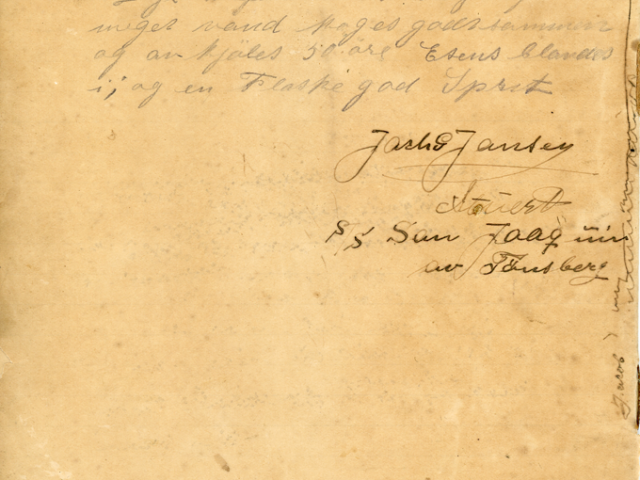 meget vand koges godt sammen
og av kjöles 50 öre Esens blandes
i; og en Flaske god Sprit
Jansen
Stuert
S/S San Joaquin
av Tönsberg
Jacob